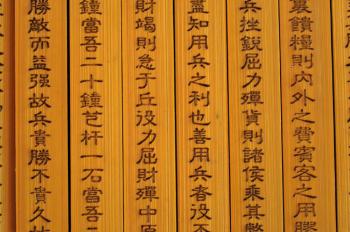 裏饋糧則內外之費賓客之用膠
兵挫銳屈力殫貨則諸侯乘其弊
盡知用兵之利也善用兵者役不
財竭則急于丘役力屈財殫中原
鐘當吾二十鐘芑杆一石當吾二
勝敵而益强故兵貴勝不貴久故